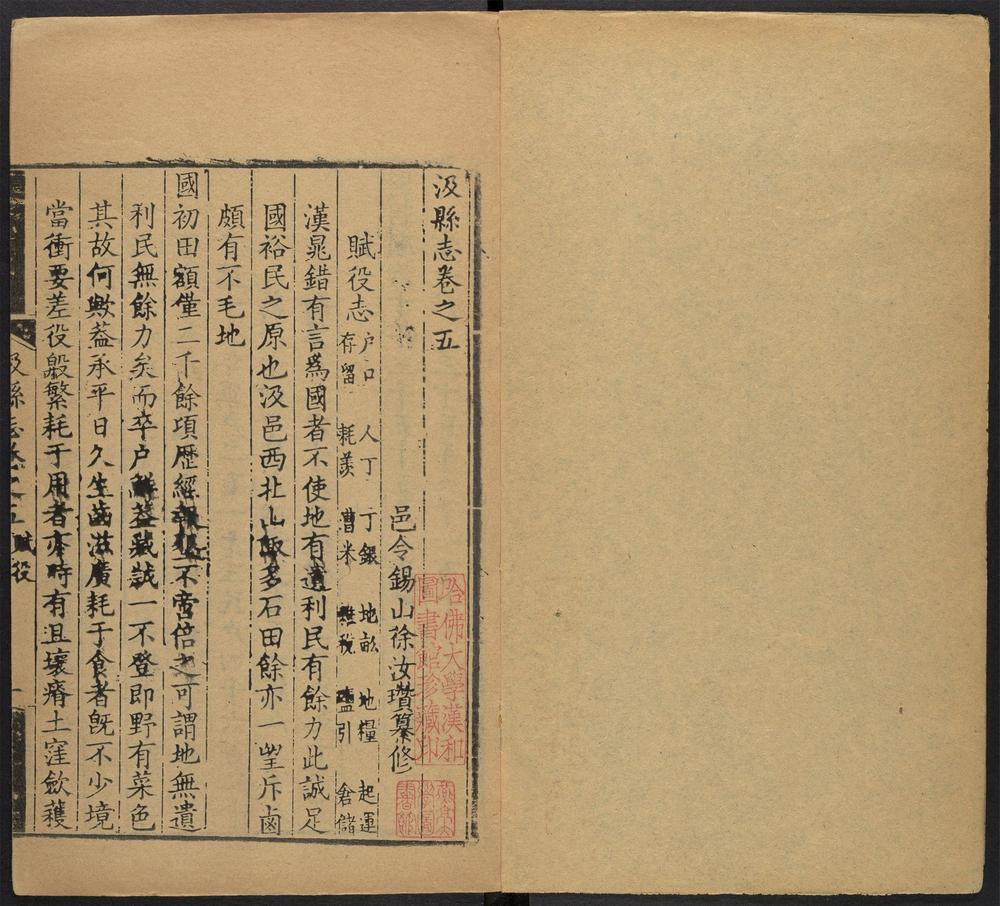 汲縣志卷之五
邑令錫山徐汝瓚纂修
賦役志 户口 人丁 丁銀 地畝 地糧 起運
存留 耗羨 漕米 雜稅 鹽引 倉儲
漢鼂錯有言爲國者不使地有遺利民有餘力此誠足
國裕民之原也汲邑西北山陬多石田餘亦一望斥鹵
頗有不毛地
國初田額僅二千餘項歷經報墾不啻倍之可謂地無遺
利民無餘力矣而卒户鮮葢藏誠一不登即野有菜色
其故何歟葢承平日久生齒滋廣耗于食者旣不少境
當衝要差役殷繁耗于用者亦時有且壤瘠土窪歛穫
汲縣志卷之五 賦役 一
哈佛大學漢和
圖書館珍藏印